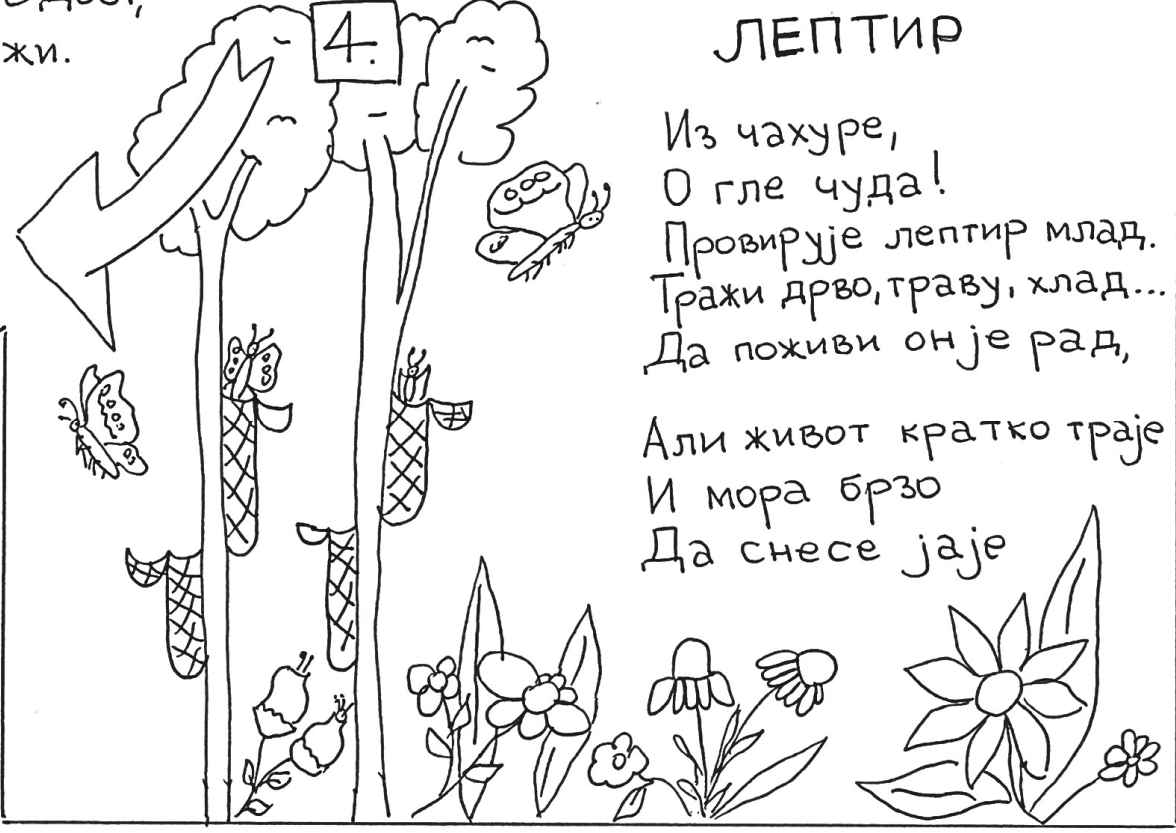 жи.
4.
ЛЕПТИР
Из чахуре,
О гле чуда!
Провирује лептир млад.
Тражи дрво, траву, хлад...
Да поживи он је рад,
Али живот кратко траје
И мора брзо
Да снесе јаје